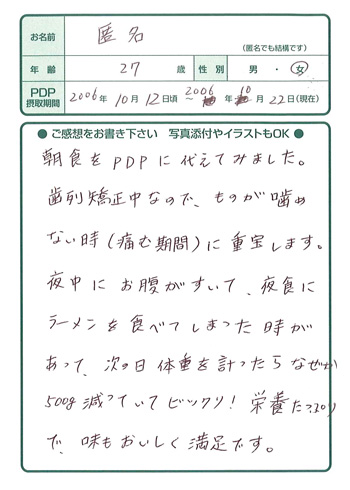 お名前 匿名 (匿名でも結構です)
年齢 27 歳 性別 男・女
PDP摂取期間 2006年 10月 12日頃 〜 2006年 10月 22日(現在)
● ご感想をお書き下さい 写真添付やイラストもOK ●
朝食をPDPに代えてみました。
歯列矯正中なので、ものが噛め
ない時(痛む期間)に重宝します。
夜中にお腹がすいて、夜食に
ラーメンを食べてしまった時が
あって、次の日体重を計ったらなぜか
500g減っていてビックリ! 栄養たっぷり
で、味もおいしく満足です。